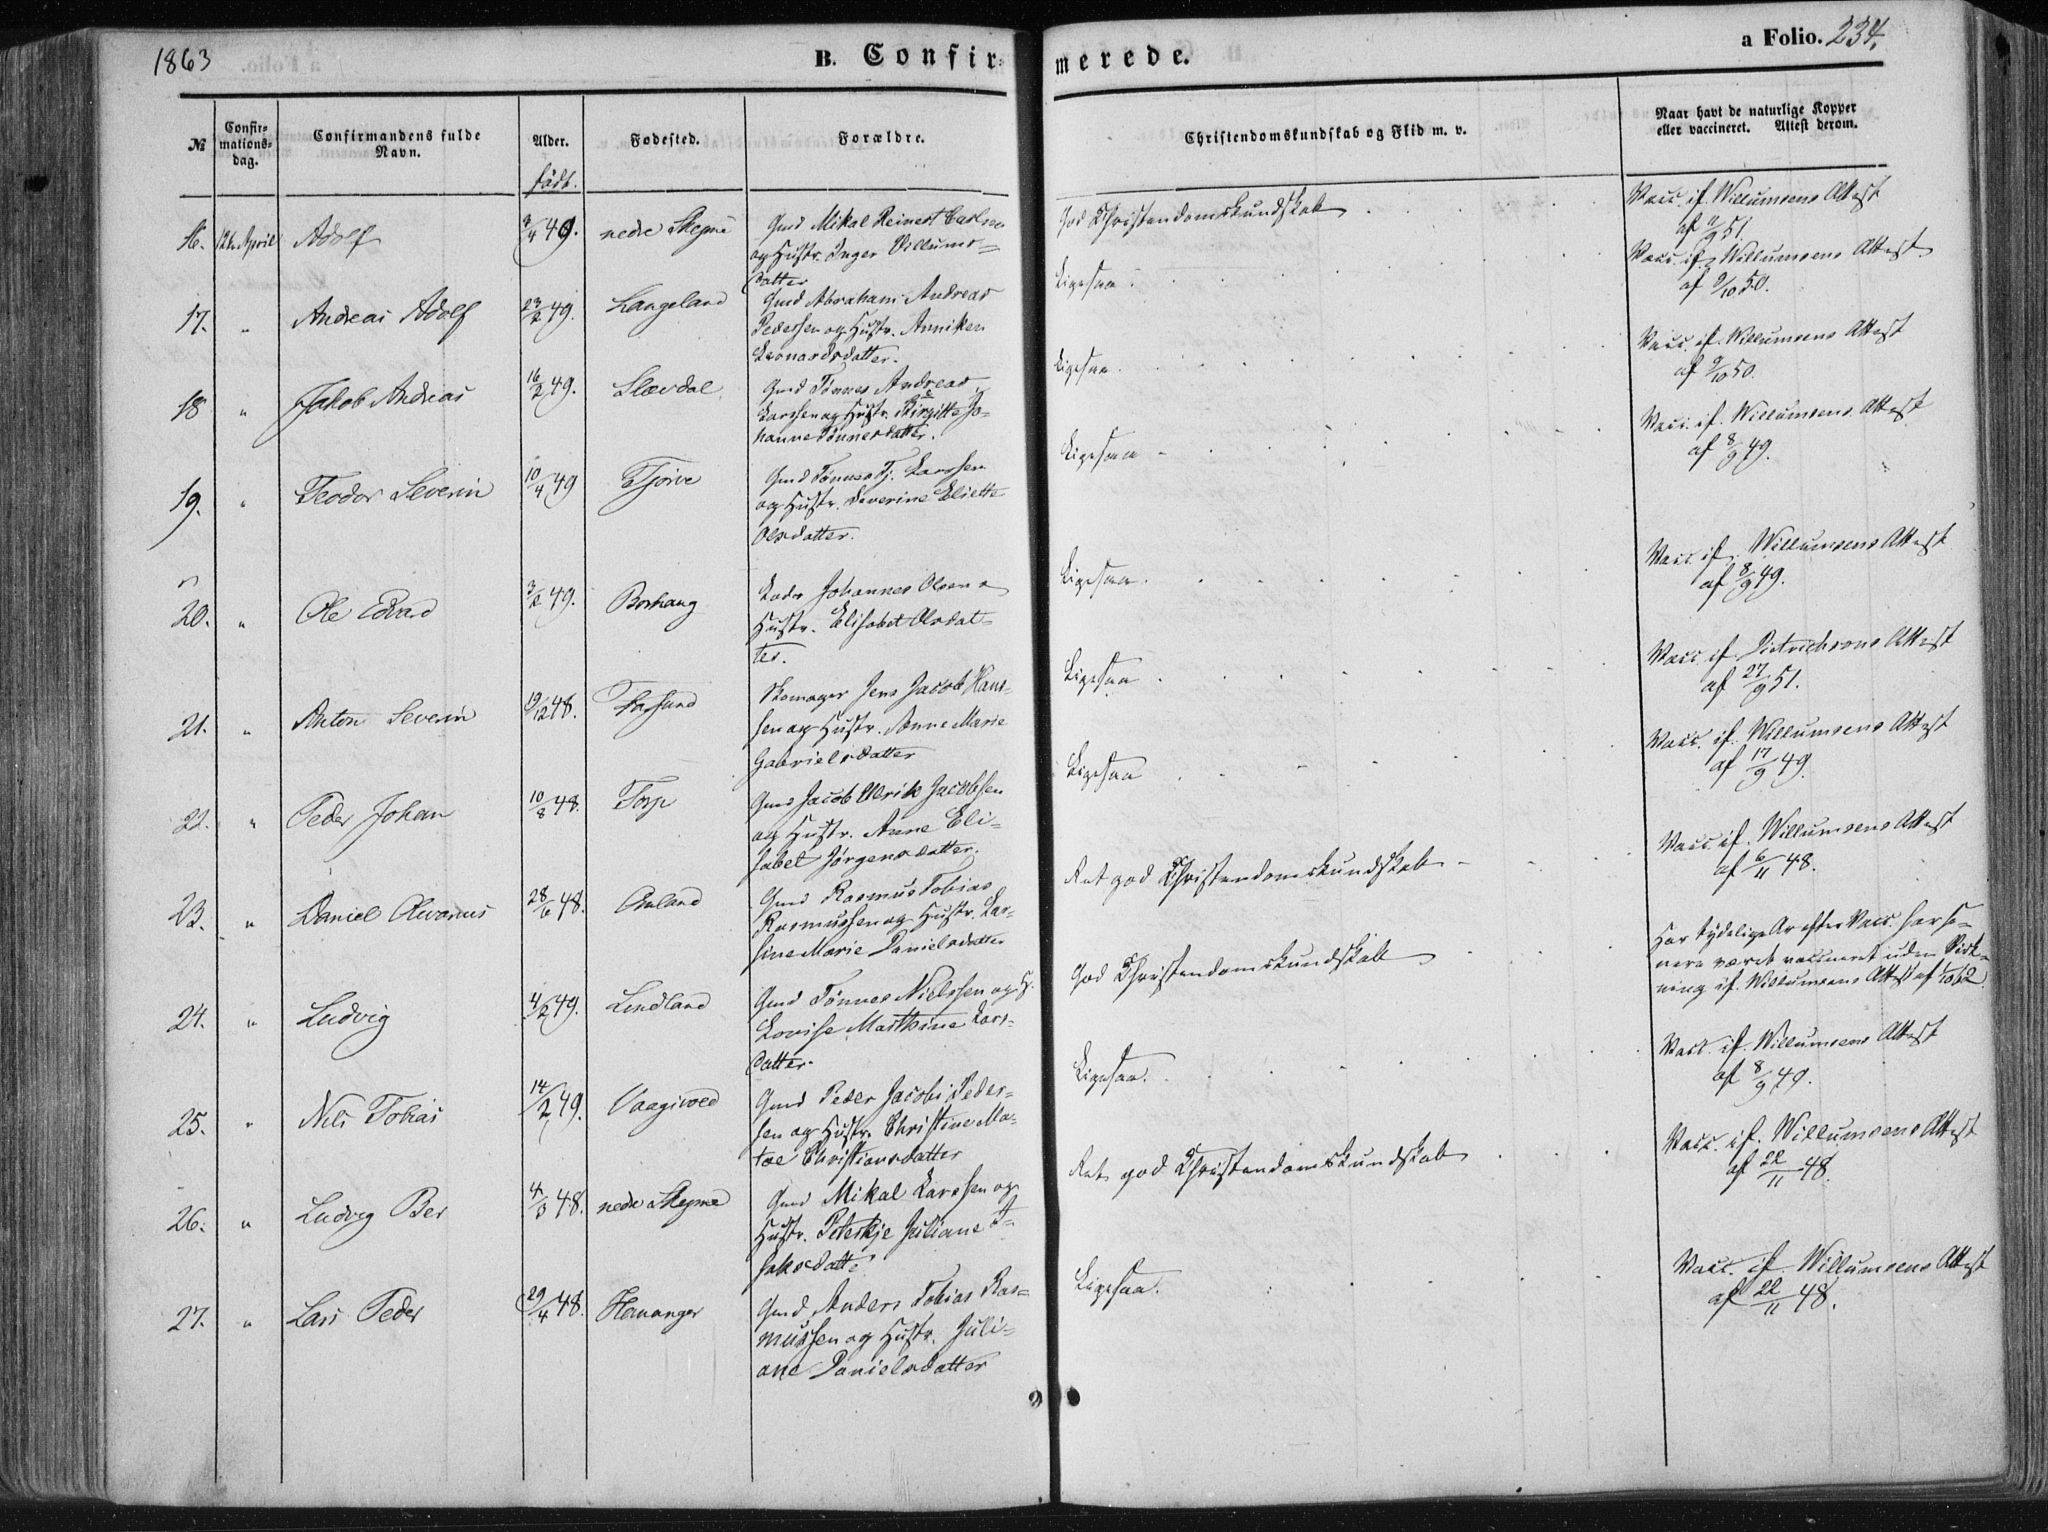 1863
B. Confir-
merede.
a Folio. 234.
№
Confir-
mations-
dag.
Confirmandens fulde
Navn.
Alder.
født.
Fødested.
Forældre.
Christendomskundskab og Flid m. v.
Naar havt de naturlige Kopper
eller vaccineret. Attest derom.
16. 12te April Adolf 3/4 49. nedre Skeime
Gmd Mikal Reinert Carlsen
og Hustr. Inger Villums-
datter
God Christendomskundskab
Vacc. if. Willumsens Attest
af 51.
17. " Andreas Adolf 23/2 49. Langeland
Gmd Abraham Andreas
Pedersen og Hustr. Anniken
Leonardsdatter.
Ligesaa
Vacc. if. Willumsens Attest
af 9/10 50.
18 " Jakob Andreas 16/2 49. Slævdal
Gmd Tønnes Andreas
Larssen og Hustr. Birgitte Jo-
hanne Tønnesdatter.
Ligesaa
Vacc. if. Willumsens Attest
af 9/10 50.
19. " Teodor Severin 10/4 49 Tjørve
Gmd Tønnes Tj. Larssen
og Hustr. Severine Eliette
Olsdatter.
Ligesaa
Vacc. if. Willumsens Attest
af 8/9 49.
20. " Ole Edvard 3/2 49. Borhaug
Lods Johannes Olsen o
Hustr. Elisabet Olsdat-
ter.
Ligesaa
Vacc. if. Willumsens Attest
af 8/9 49.
21. " Anton Severin 19/12 48. Farsund
Skomager Jens Jacob Hans-
sen og Hustr. Anne Marie
Gabrielsdatter
Ligesaa
Vacc. if. Dietrichsons Attest
af 27/9 51.
22. " Peder Johan 10/8 48. Torp
Gmd Jacob Ulrik Jacobsen
og Hustr. Anne Eli-
sabet Jørgensdatter.
Ligesaa
Vacc. if. Willumsens Attest
af 17/9 49.
23. " Daniel Olvarius 28/6 48. Østland
Gmd Rasmus Tobias
Rasmussen og Hustr. Lar-
sine Marie Danielsdatter
Ret god Christendomskundskab
Vacc. if. Willumsens Attest
af 6/11 48.
24. " Ludvig 4/2 49. Lindland
Gmd Tønnes Nielssen og H.
Lovise Marthine Lars-
datter.
God Christendomskundskab
Har tydelige Ar efter Vacc. har se-
nere været vaccineret uden Virk-
ning if. Willumsens Attest af 1/10 62.
25. " Nils Tobias 14/2 49. Vaagsvold
Gmd Peder Jacobi Peder-
sen og Hustr. Christine Ma-
tee Christiansdatter
Ligesaa.
Vacc. if. Willumsens Attest
af 8/9 49.
26. " Ludvig Ber 4/3 48. nedre Skeime
Gmd Mikal Larssen og
Hustr. Peterkje Juliane I-
saksdatte
Ret god Christendomskundskab
Vacc. if. Willumsens Attest
af 22/11 48.
27. " Lars Peder 29/4 48. Hananger
Gmd Anders Tobias Ras-
mussen og Hustr. Juli-
ane Danielsdatter
Ligesaa.
Vacc. if. Willumsens Attest
af 22/11 48.